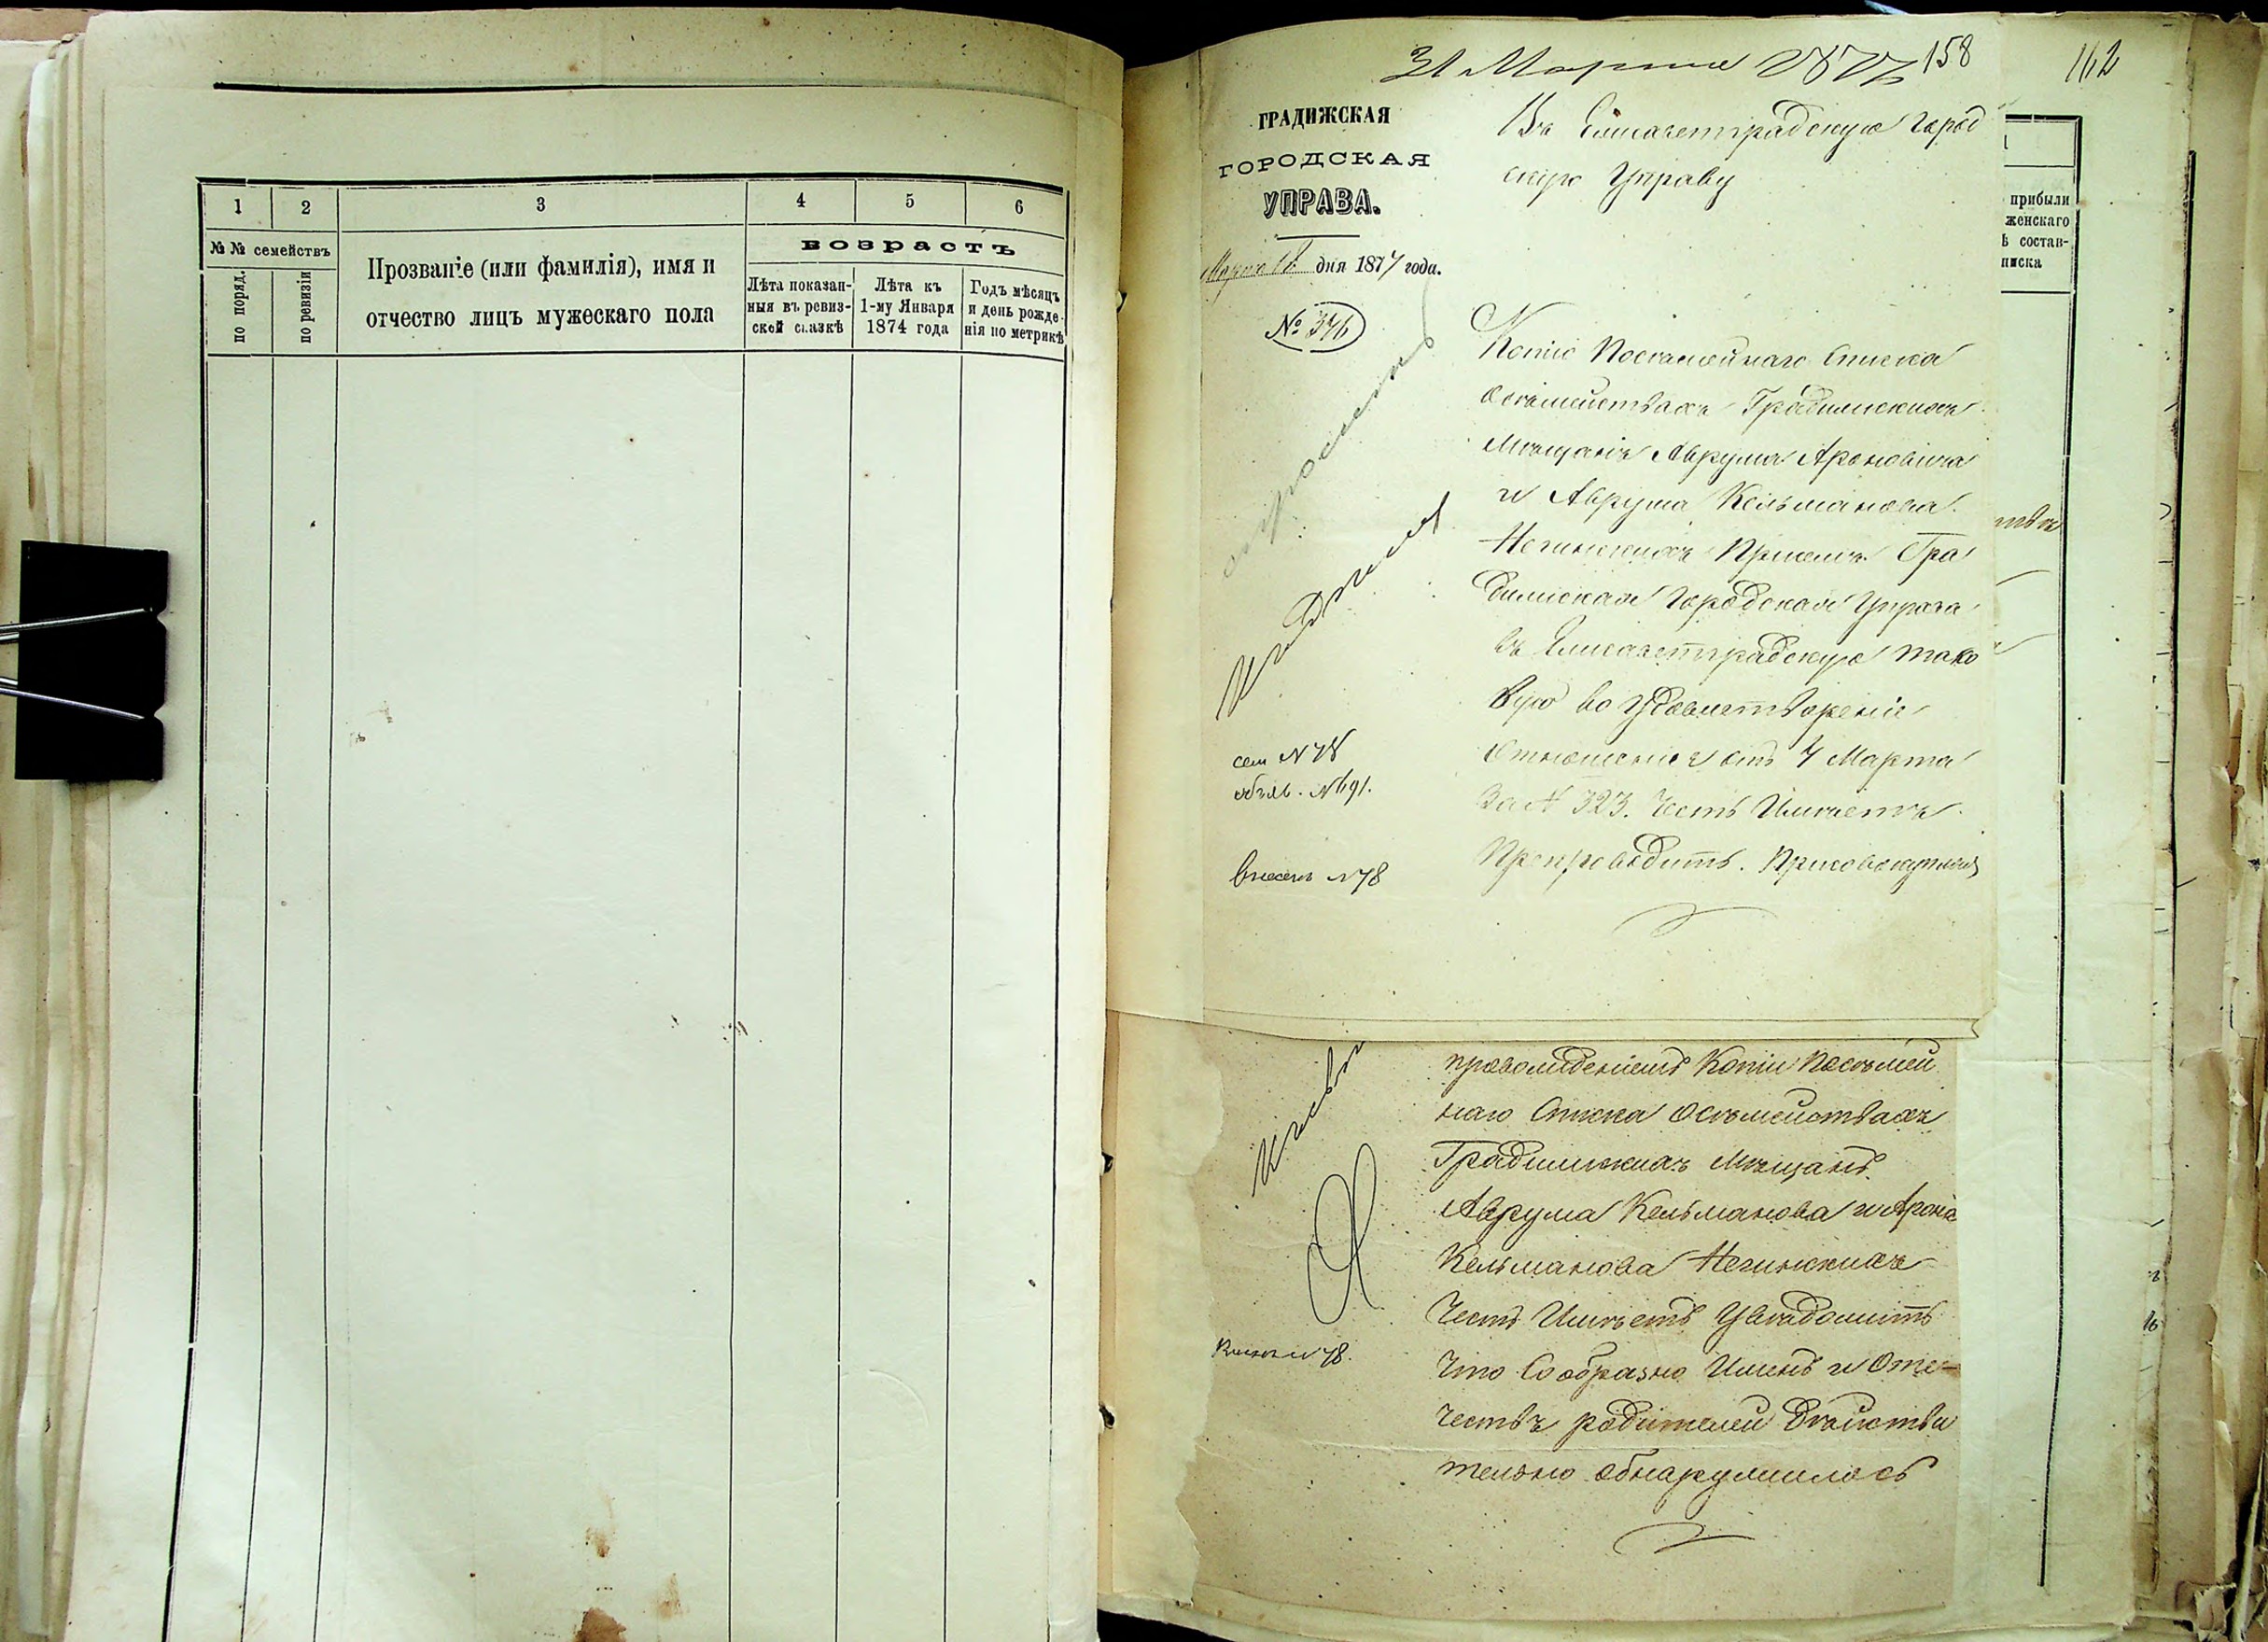 1 2 3 4 5 6
№ № семействъ
по поряд.
по ревизіи
Прозваніе (или фамилія), имя и
отчество лицъ мужескаго пола
возрастъ
Лѣта показан-
ныя въ ревиз-
ской сказкѣ
Лѣта къ
1-му Января
1874 года
Годъ мѣсяцъ
и день рожде-
нія по метрикѣ
31 Марта 1877
158
162
ГРАДИЖСКАЯ
ГОРОДСКАЯ
УПРАВА.
Марта дня 1877 года.
№ 376
Въ Елисаветградскую город
скую Управу
Копію Посемейнаго Списка
Осемействахъ Градижскихъ
Мѣщанъ Аврума Ароновича
и Аврума Кельманова
Негинскихъ При семъ Гра
дижская Городская Управа
въ Елисаветградскую тако
вую во Удовлетвореніе
Отношенія отъ 7 Марта
За N 323. Честь Имѣетъ
Препроводить. Присовокупляя
сем N 78
объяв. N 691.
внесенъ N 78
прибыли
женскаго
ѣ состав-
писка
провожденіемъ Копіи Посемей
наго Списка Осемействахъ
Градижскихъ Мѣщанъ
Аврума Кельманова и Арона
Кельманова Негинскихъ
Честь Имѣетъ Увѣдомить
Что Сообразно Именъ и Оте-
чествъ родителей Дѣйстви
тельно обнаружилось
N 78.